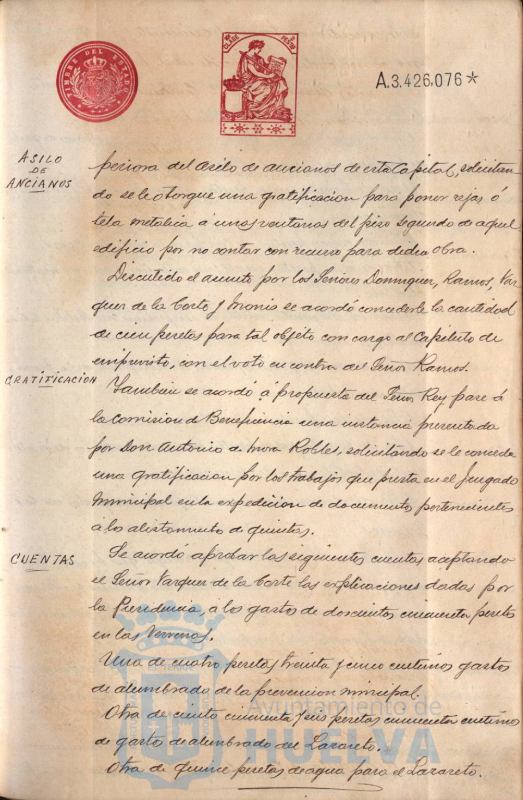 TIMBRE DEL ESTADO
10ª CLASE
PESETA
A.3.426,076*
ASILO
DE
ANCIANOS
periora del asilo de ancianos de esta Capital, solicitan-
do se le otorgue una gratificacion para poner rejas ó
tela metalica á unas ventanas del piso segundo de aquel
edificio por no contar con recurso para dicha obra.
Discutido el asunto por los Señores Dominguez, Ramos, Vaz-
quez de la Corte y Monis se acordó concederle la cantidad
de cien pesetas para tal objeto con cargo al Capitulo de
imprevisto, con el voto en contra del Señor Ramos.
GRATIFICACION
Tambien se acordó á propuesta del Señor Rey pase á
la Comision de Beneficencia una instancia presentada
por Don Antonio de Mora Robles, solicitando se le conceda
una gratificacion por los trabajos que presta en el Juzgado
Municipal en la expedicion de documento pertenecientes
a lo alistamento de quintas.
CUENTAS
Se acordó aprobar las siguientes cuentas aceptando
el Señor Vazquez de la Corte las explicaciones dadas por
la Presidencia, a los gastos de doscientas cincuenta pesetas
en las
Una de cuatro pesetas treinta y cinco centimos gastos
de alumbrado de la prevencion municipal.
Otra de ciento cincuenta y seis pesetas cincuenta centimos
de gastos de alumbrado del Lazareto.
Otra de quince pesetas de agua para el Lazareto.
Ayuntamiento de
HUELVA